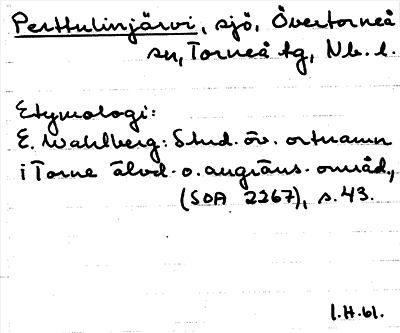 Perttulinjärvi, sjö, Övertorneå
sn, Torneå tg, Nb. l.
Etymologi:
E. Wahlberg: Stud. öv. ortnamn
i Torne älvd. o. angräns. områd.,
(SOA 2267), s. 43.
1.H.61.